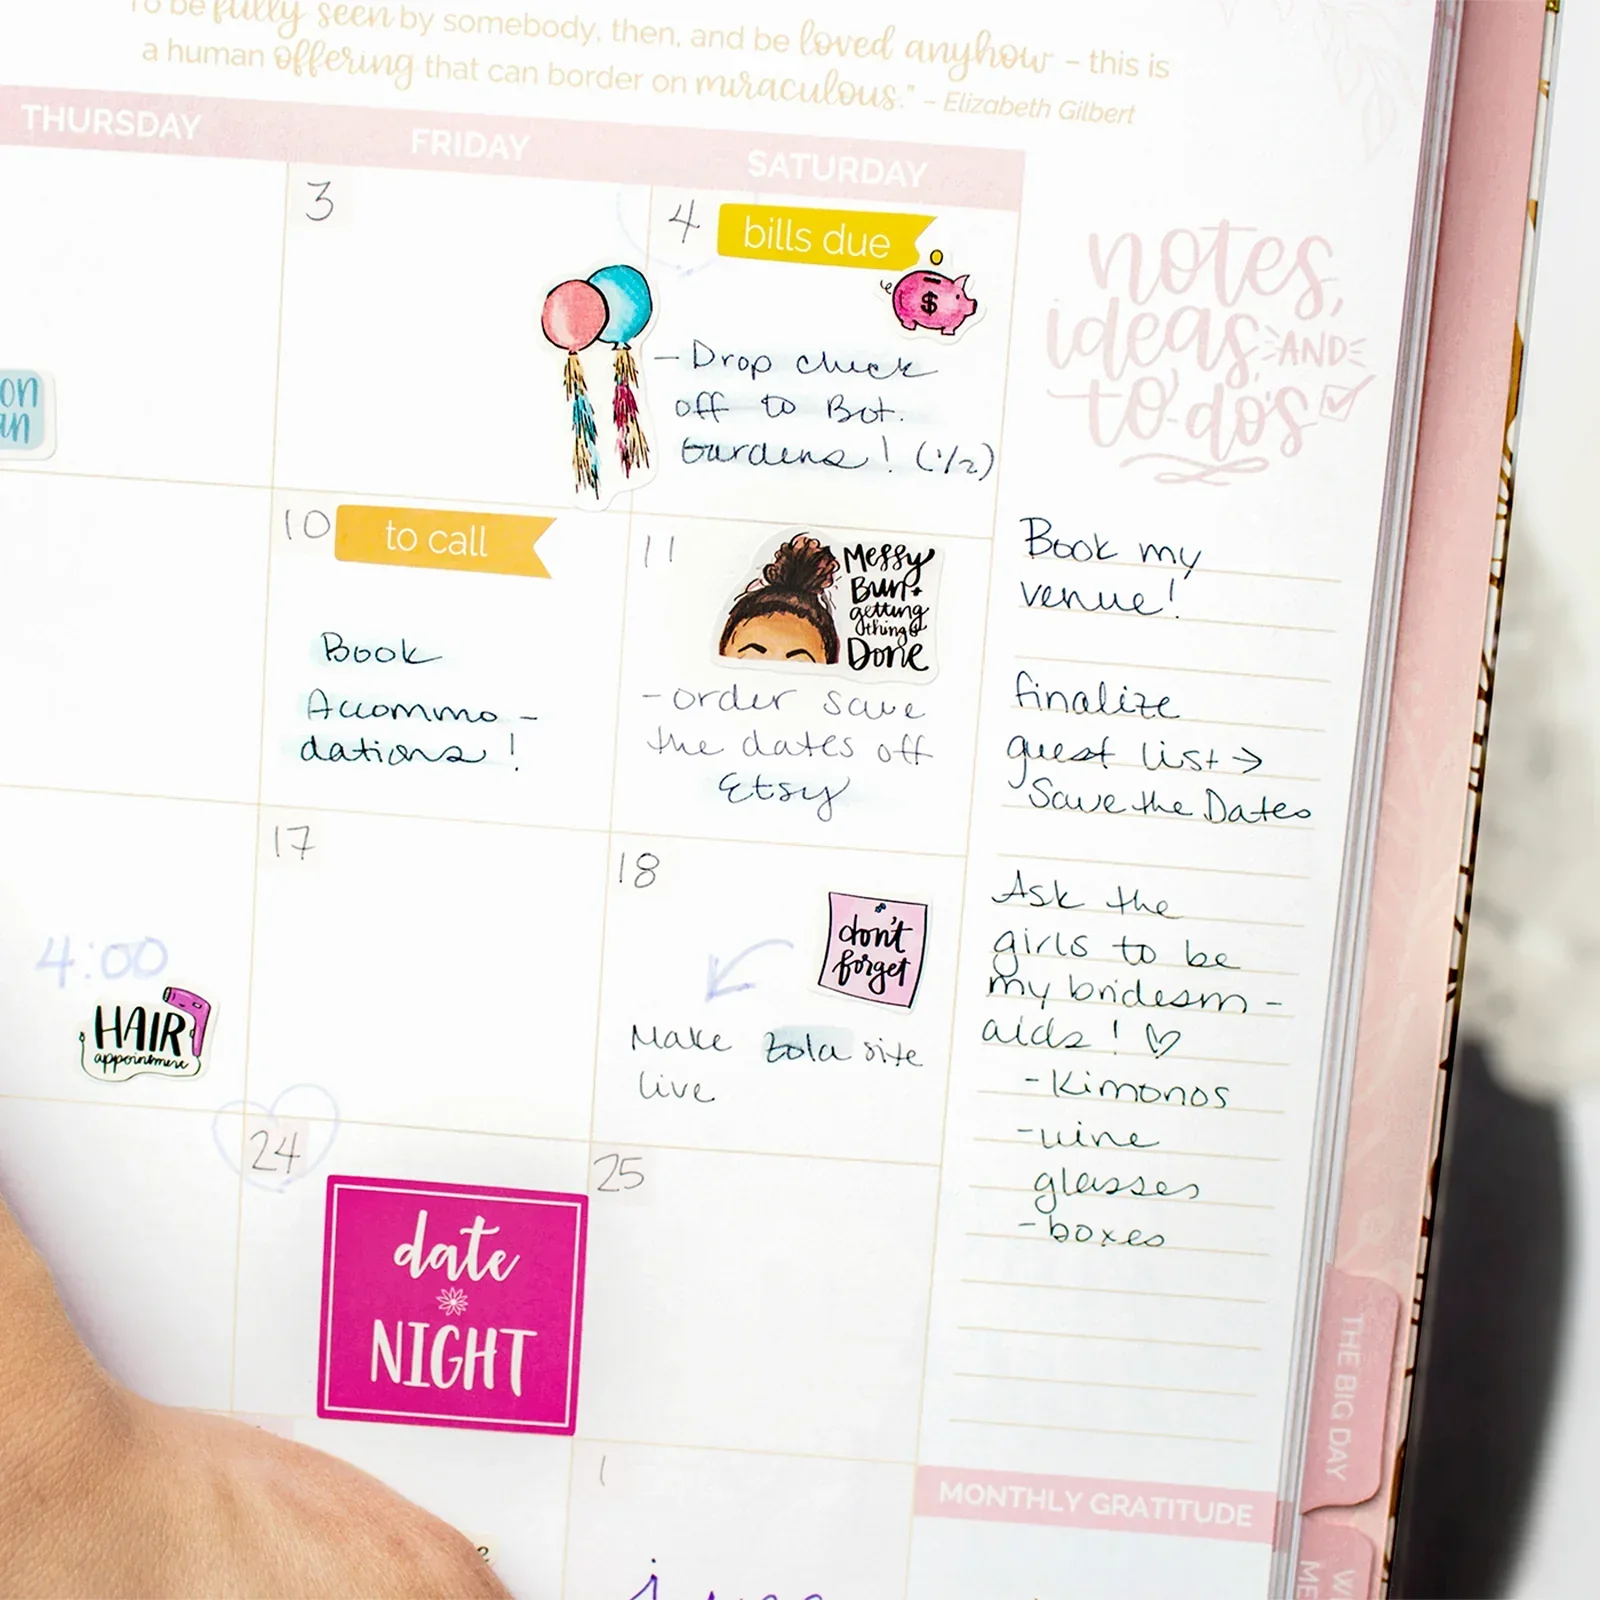 fully seen by somebody, then, and be loved anyhow – this is
a human offering that can border on miraculous." – Elizabeth Gilbert
THURSDAY
FRIDAY
SATURDAY
3
4
bills due
$
- Drop check
off to Bot.
Gardens! (1/2)
notes,
ideas, AND
to-do's
10
to call
Book
Accommo-
dations!
11
Messy
Bun +
getting
things
Done
- order save
the dates off
Etsy
17
4:00
HAIR
appointment
18
don't
forget
Make Zola site
live
24
date
NIGHT
25
1
Book my
venue!
finalize
guest list →
Save the Dates
Ask the
girls to be
my bridesm-
aids! ♡
- Kimonos
- wine
glasses
- boxes
MONTHLY GRATITUDE
THE BIG DAY